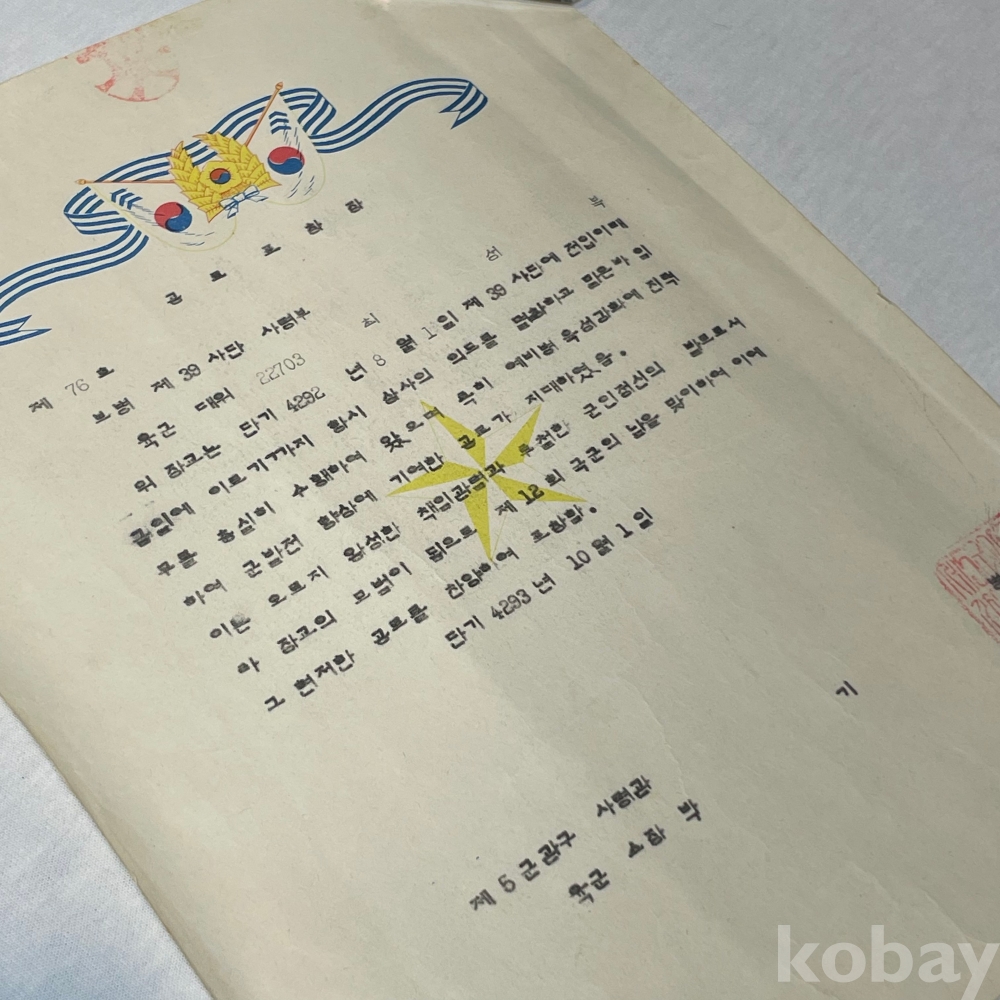 공 로 표 창 장
제 76 호
보병 제 39 사단 사령부
육군 대위 22703 최 성 박
위 장교는 단기 4292 년 8 월 1일 제 39 사단에 전입이래
금일에 이르기까지 항시 상사의 의도를 명찰하고 맡은바 임
무를 충실히 수행하여 왔으며 특히 예비병 육성강화에 진력
하여 군발전 향상에 기여한 공로가 지대하였음.
이는 오로지 왕성한 책임관념과 투철한 군인정신의 발로로서
타 장교의 모범이 됨으로 제 12 회 국군의 날을 맞이하여 이에
그 현저한 공로를 찬양하여 표창함.
단기 4293 년 10 월 1 일
제 5 군관구 사령관
육군 소장 박 기
kobay